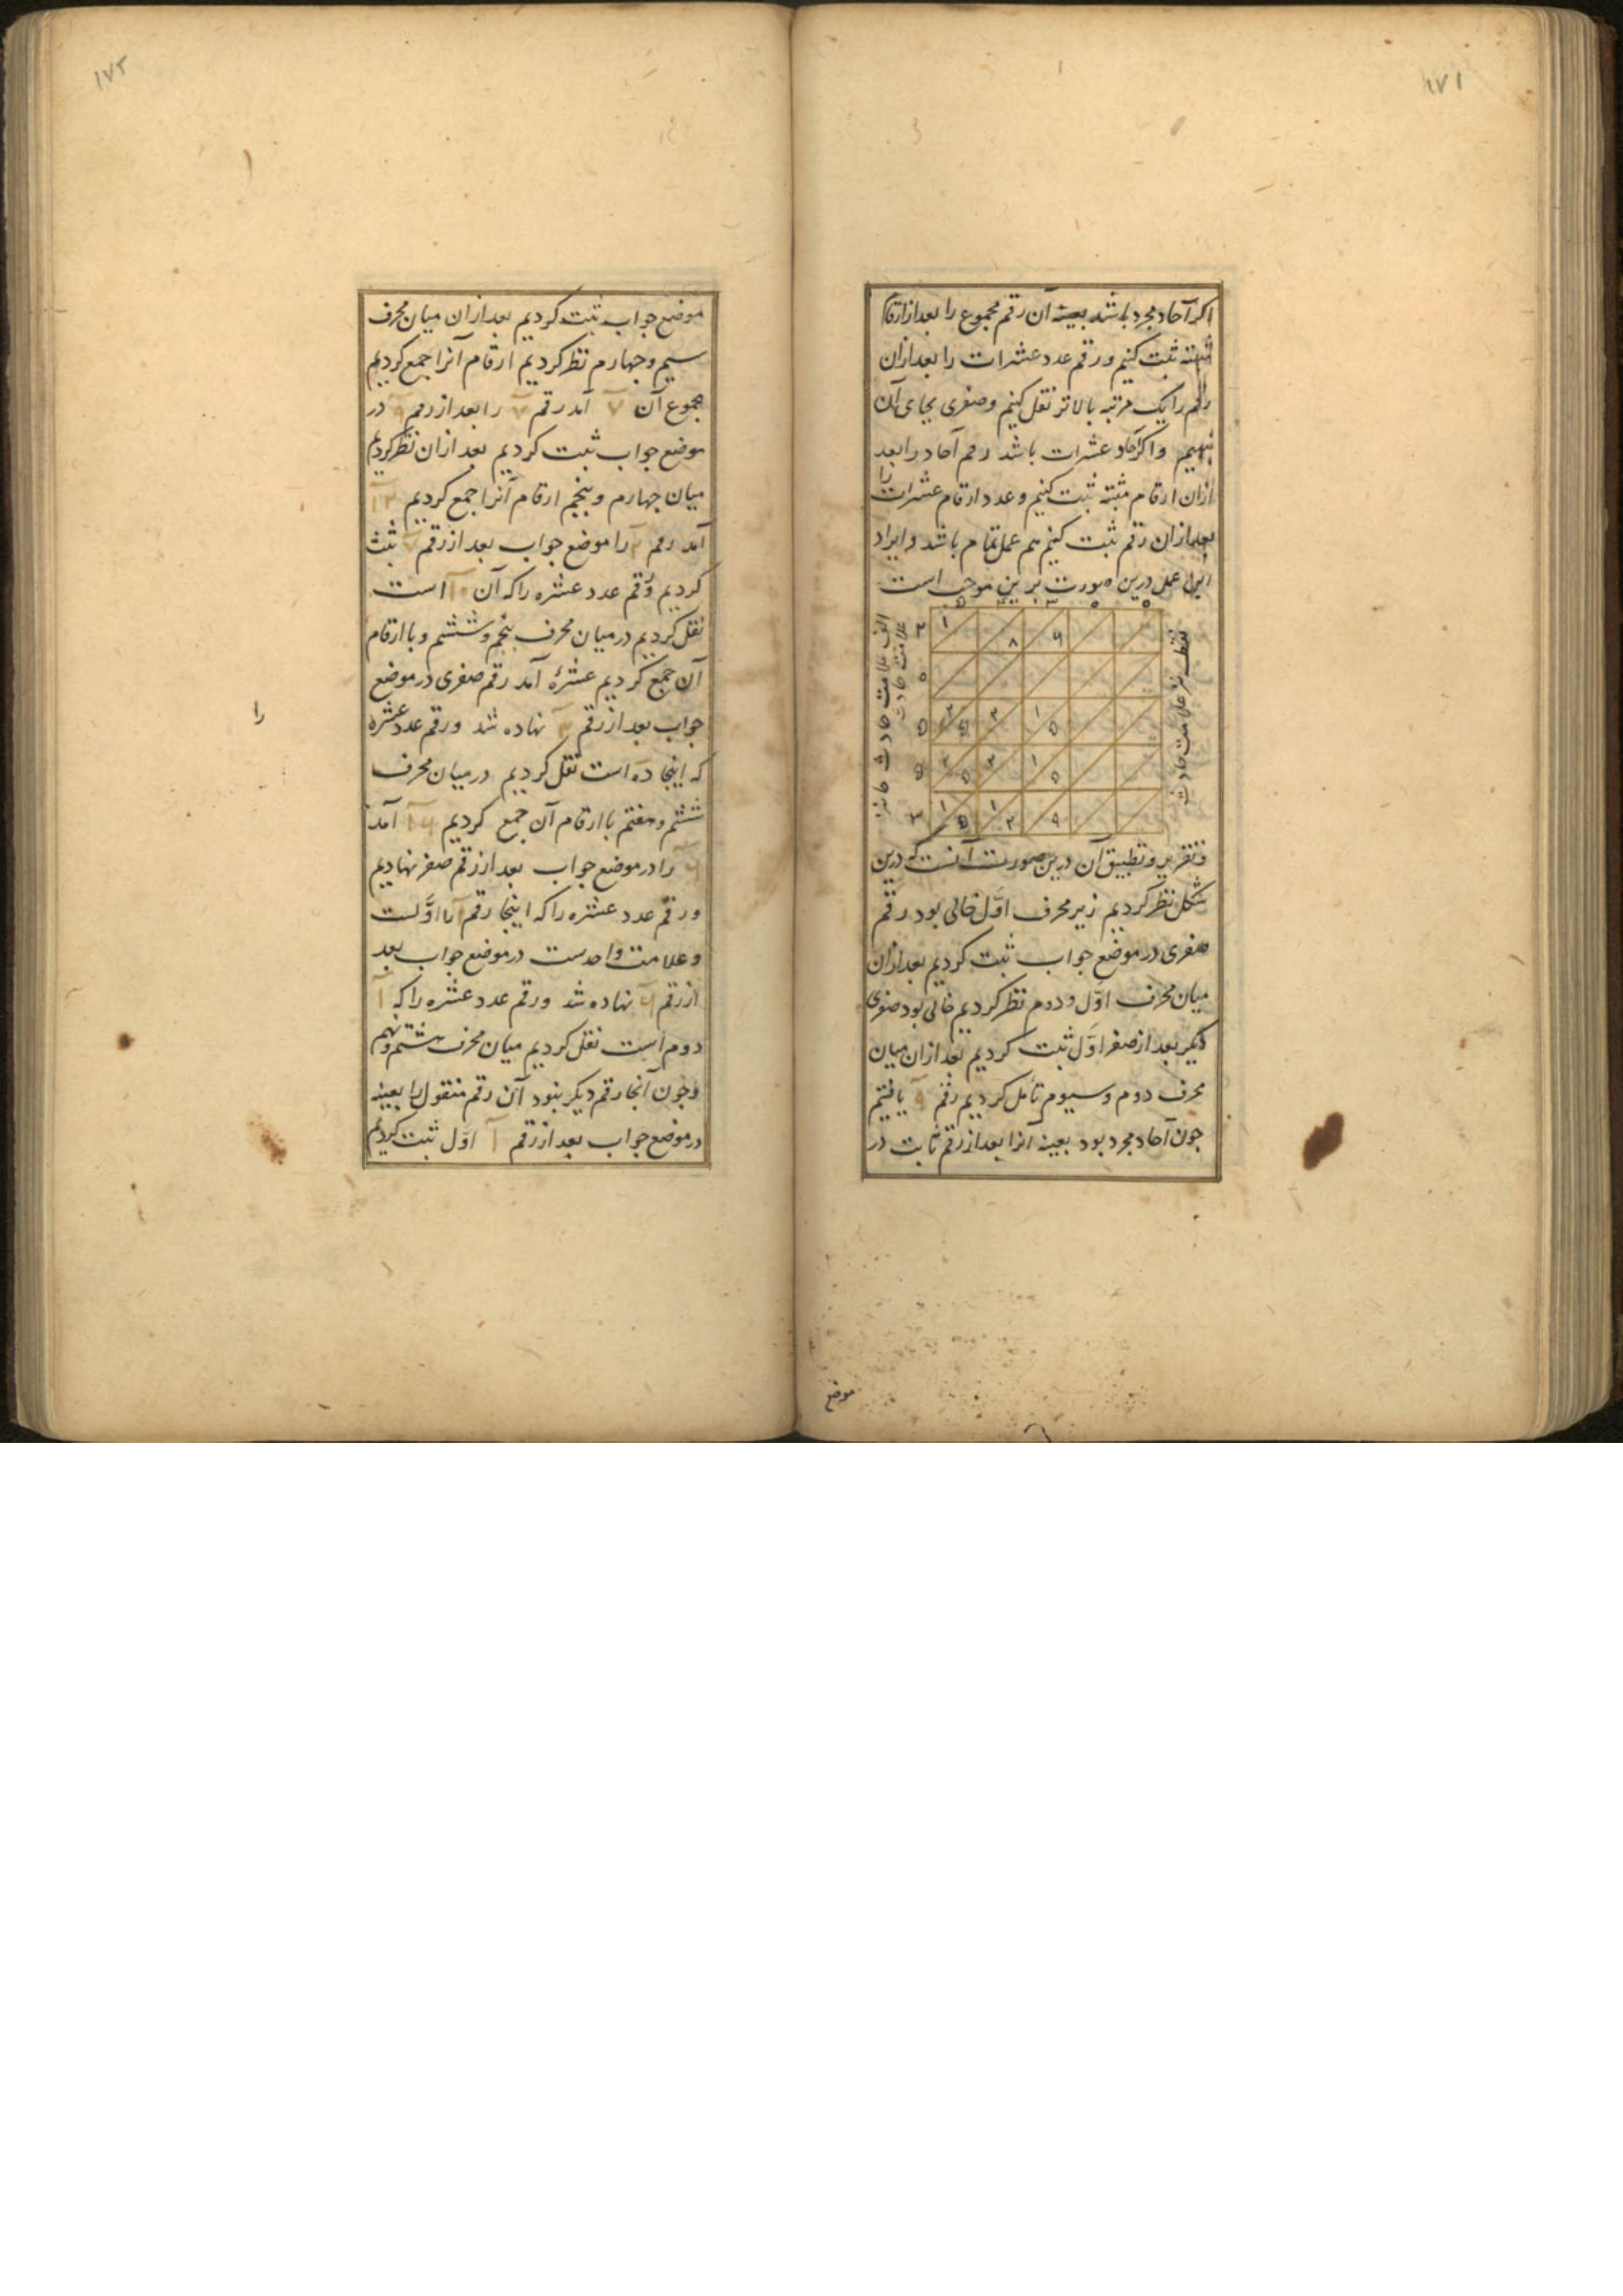 ۱۷۱
اکر آحاد مجرد باشد بعینه آن رقم مجموع را بعد از ارقام
مثبته ثبت کنیم ورقم عدد عشرات را بعد ازان
رقم را یک مرتبه بالاتر نقل کنیم وصفری بجای آن
نهیم واکر آحاد وعشرات باشد رقم آحاد را بعد
ازان ارقام مثبته ثبت کنیم وعدد ارقام عشرات را
بعد ازان رقم ثبت کنیم هم عمل تمام باشد وایراد
این عمل درین صورت برین موجب است
۱ ۸ ۹
۲ ۵ ۳ ۱ ۵
۲ ۵ ۳ ۱ ۵
۱ ۵ ۱ ۲ ۹
وتقریر وتطبیق آن درین صورت آنست که درین
شکل نظر کردیم زیر محرف اوّل خالی بود رقم
صفری در موضع جواب ثبت کردیم بعد ازان
میان محرف اوّل ودوم نظر کردیم خالی بود صفری
دیکر بعد از صفر اوّل ثبت کردیم بعد ازان میان
محرف دوم وسیوم تأمل کردیم رقم ۹ یافتیم
جون آحاد مجرد بود بعینه آنرا بعد از رقم ثابت در
موضع
۱۷۲
موضع جواب ثبت کردیم بعد ازان میان محرف
سیم وجهارم نظر کردیم ارقام آنرا جمع کردیم
مجموع آن ۷ آمد رقم ۷ را بعد از رقم ۹ در
موضع جواب ثبت کردیم بعد ازان نظر کردیم
میان جهارم وپنجم ارقام آنرا جمع کردیم
آمد رقم را موضع جواب بعد از رقم ۷ ثبت
کردیم ورقم عدد عشره را که آن است
نقل کردیم در میان محرف پنجم وششم وبا ارقام
آن جمع کردیم عشره آمد رقم صفری در موضع
جواب بعد از رقم نهاده شد ورقم عدد عشره
را
که اینجا ده است نقل کردیم در میان محرف
ششم وهفتم با ارقام آن جمع کردیم آمد
را در موضع جواب بعد از رقم صفر نهادیم
ورقم عدد عشره را که اینجا رقم ۱ اوّلست
وعلامت واحدست در موضع جواب بعد
از رقم نهاده شد ورقم عدد عشره را که ۱
دوم است نقل کردیم میان محرف هشتم ونهم
وجون آنجا رقم دیکر نبود آن رقم منقول را بعینه
در موضع جواب بعد از رقم ۱ اوّل ثبت کردیم